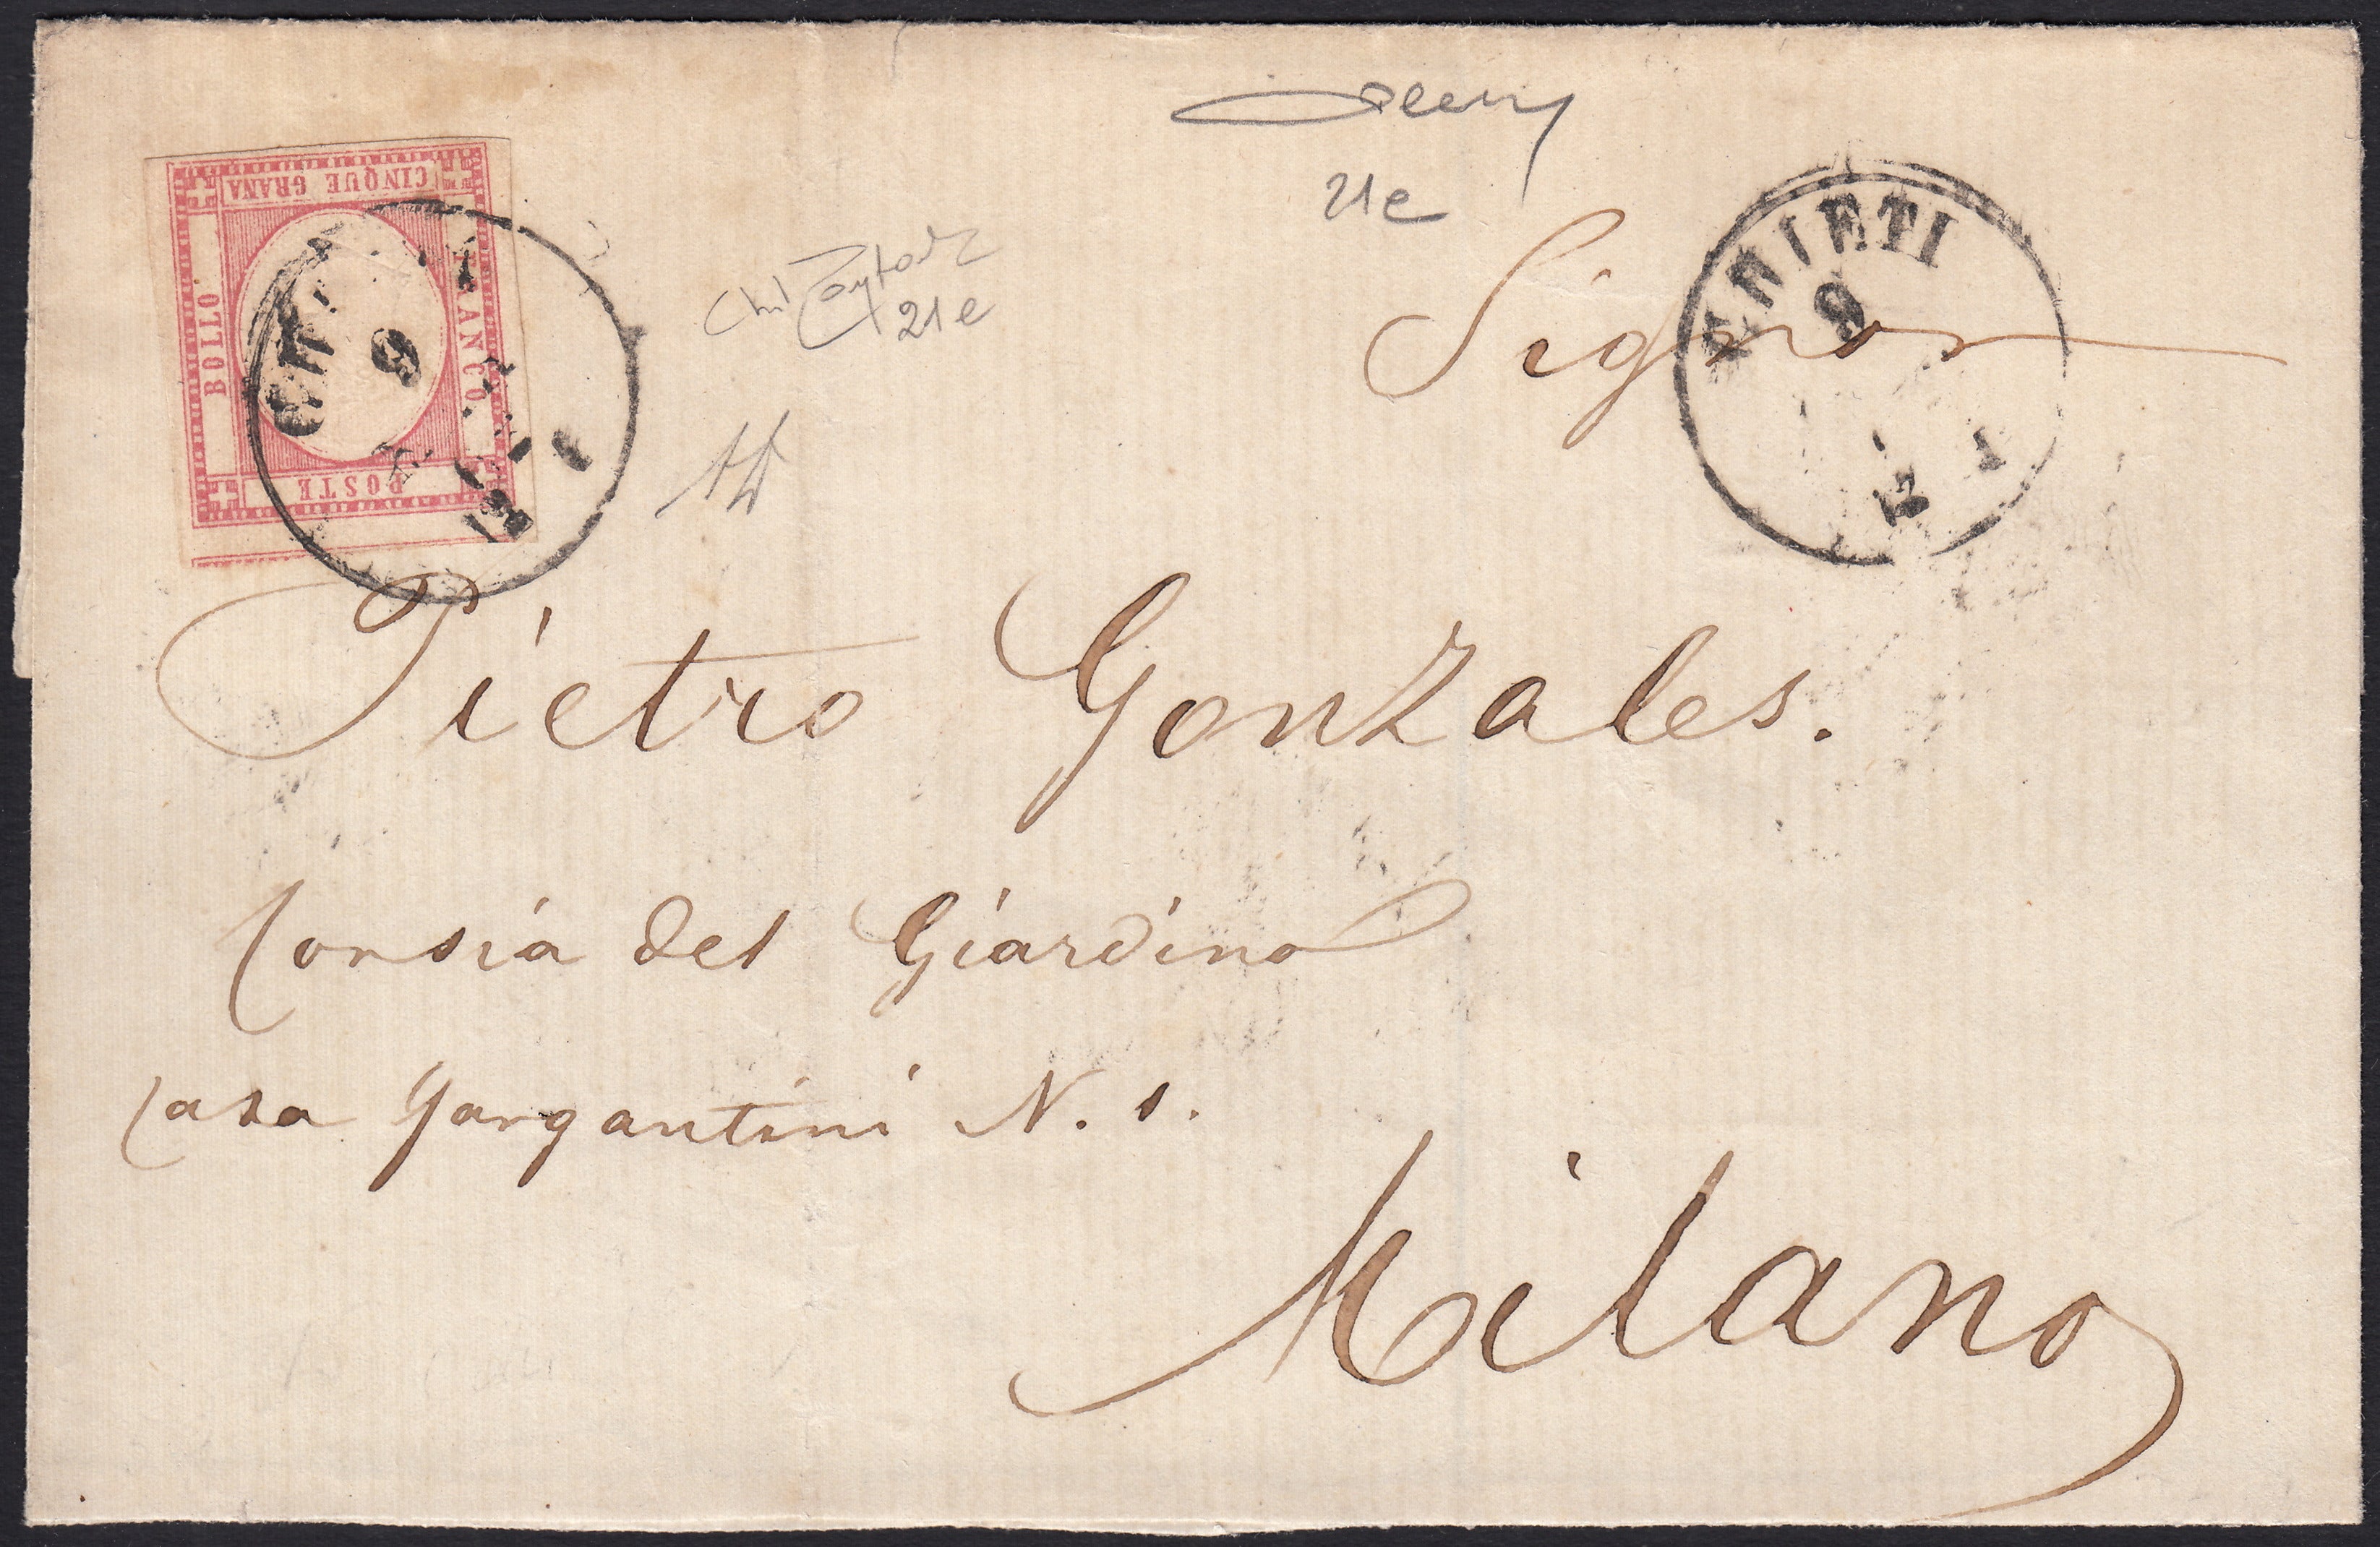 CINQUE GRANA
BOLLO
POSTE
9
1
21e
21e
CHIETI
9
1
Signor
Pietro Gonzales.
Corsia del Giardino
Casa Gargantini N. 1.
Milano